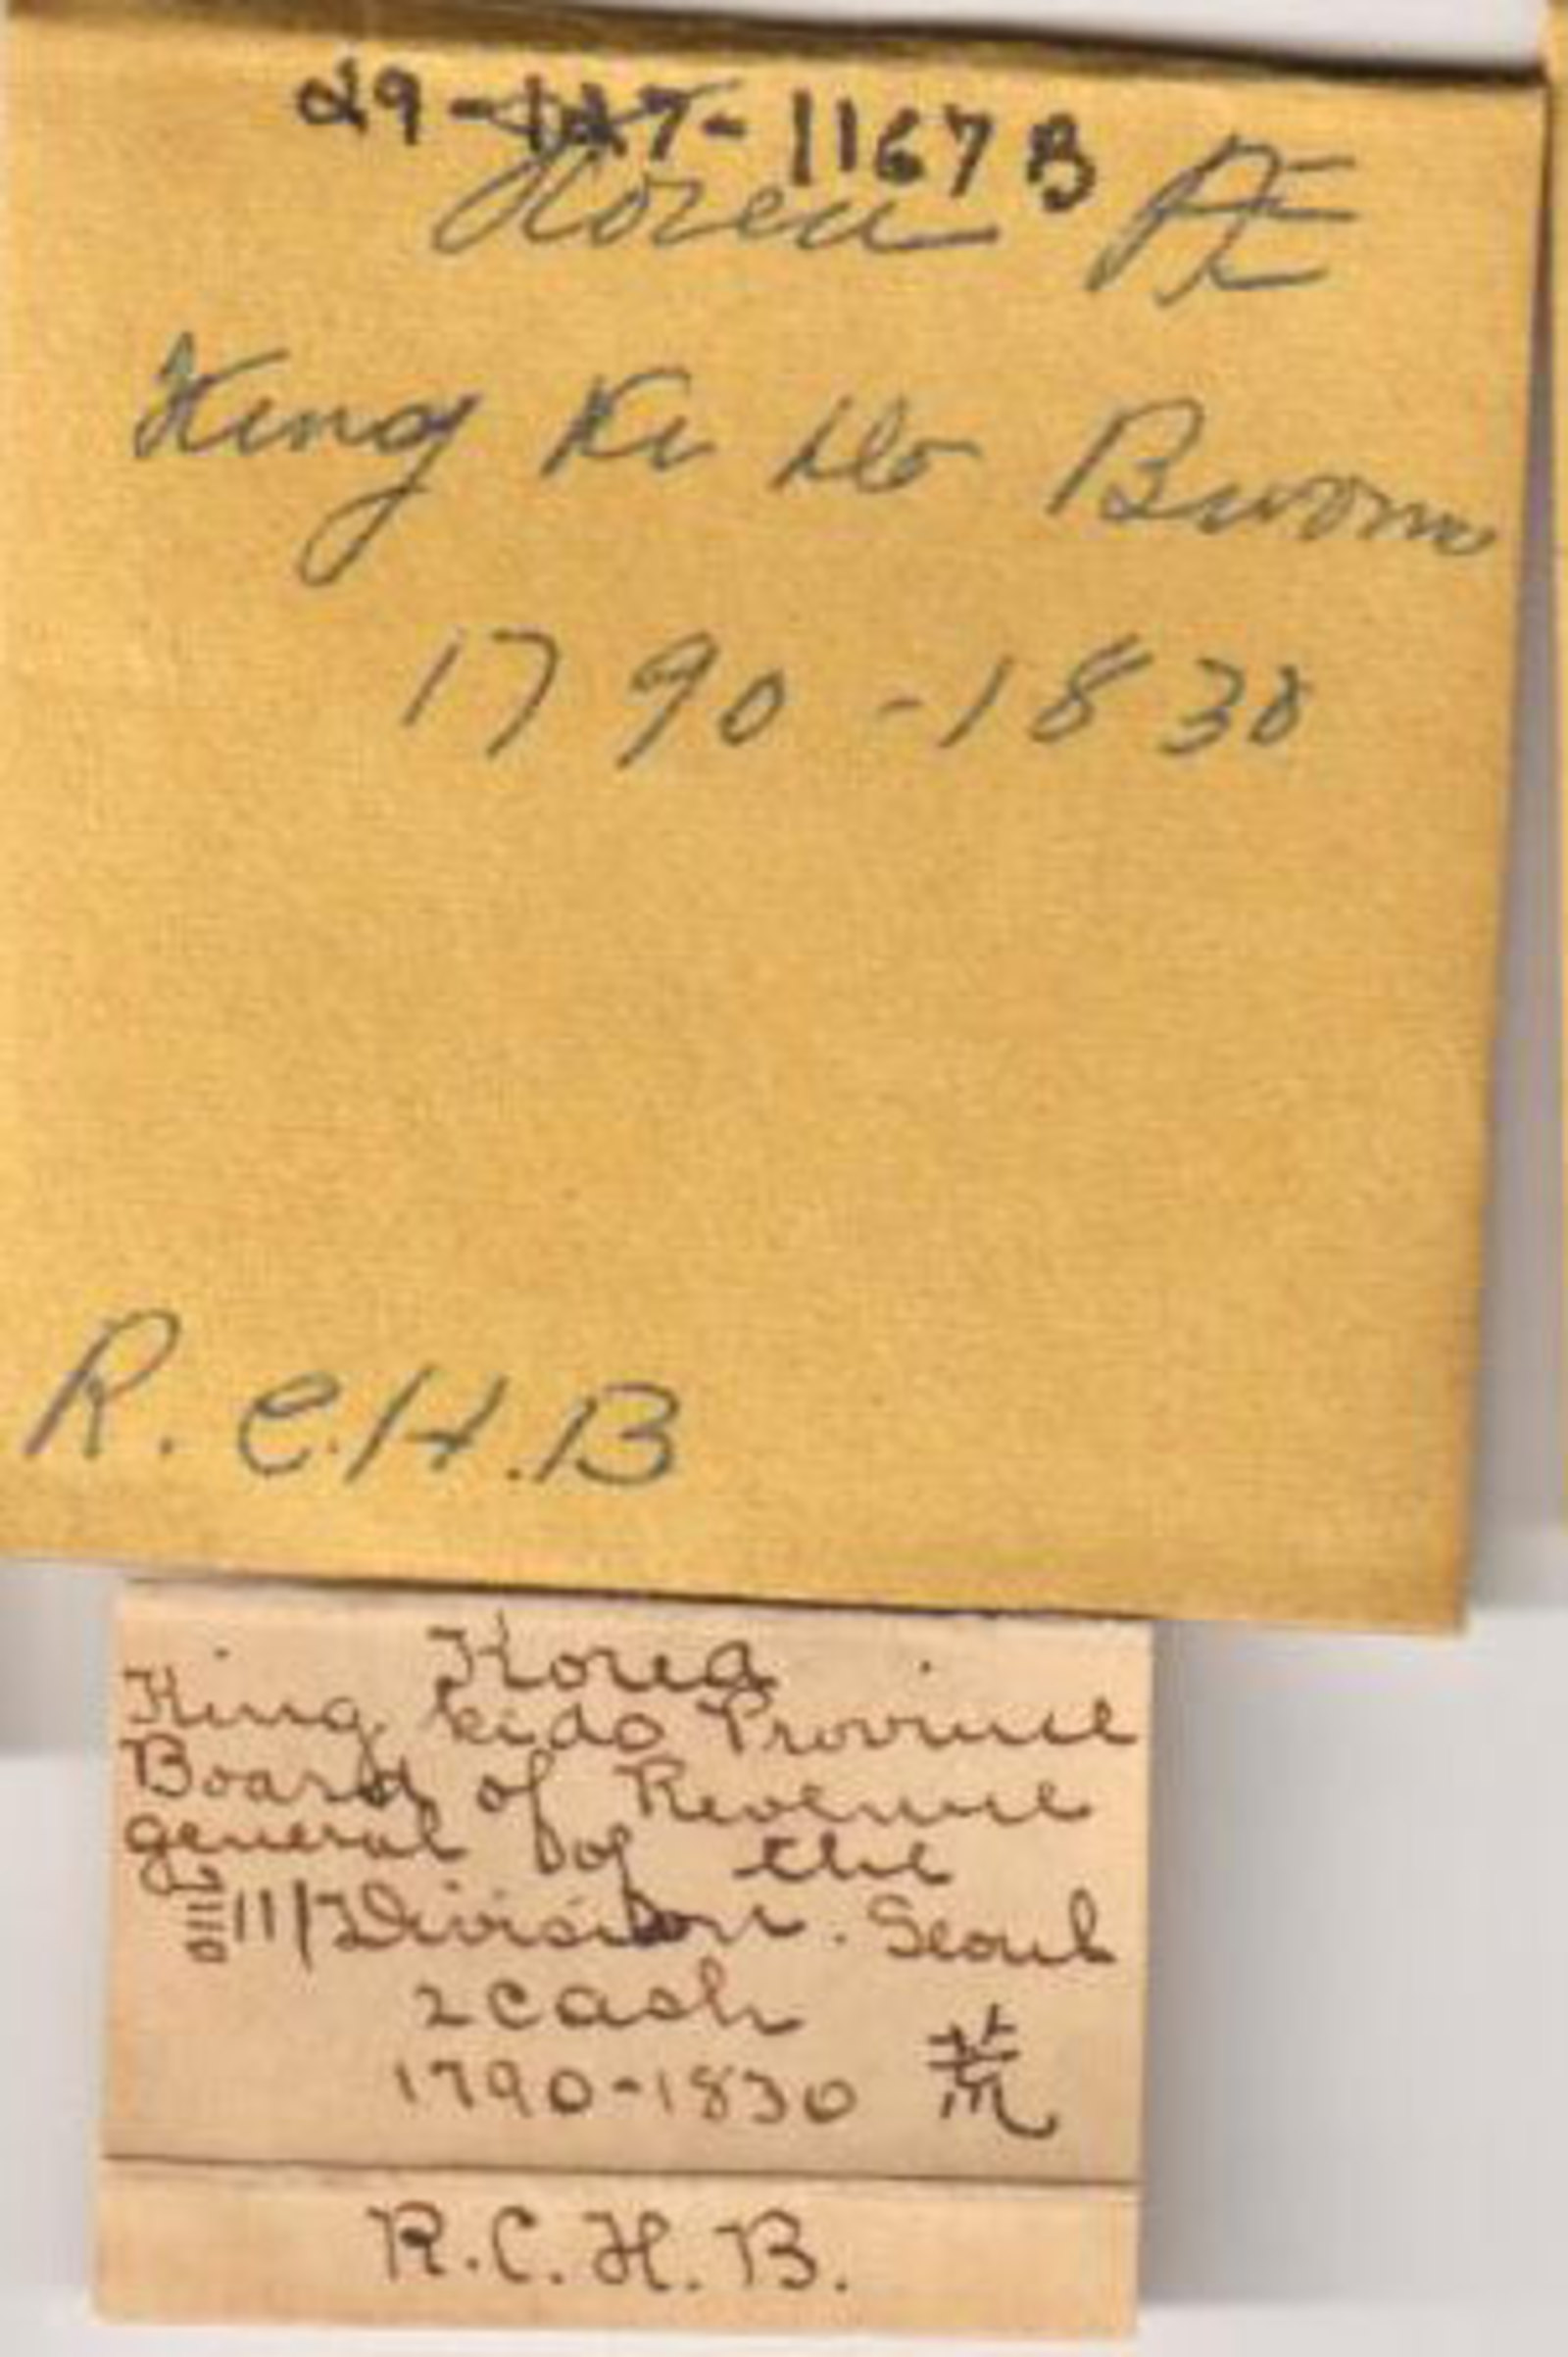 29-127-1167 B
Korea
King Ki do Bwom
1790-1830
R. C.H.B
Korea
King kido Province
Board of Revenue
general of the
Division. Seoul
2 cash
1790-1830 荒
R.C.H.B.